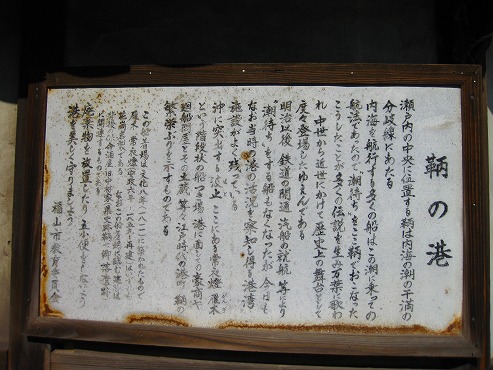 鞆の港
瀬戸内の中央に位置する鞆は内海の潮の干満の
分岐線にあたる
内海を航行する多くの船はこの潮に乗っての
航法であったので"潮待ち"をここ鞆でおこなった
こうしたことが多くの伝説を生み万葉に歌わ
れ 中世から近世にかけて歴史上の舞台として
度々登場したゆえんである
明治以後 鉄道の開通 汽船の就航 等により
"潮待ち"をする船もなくなったが 今日も
なお当時の港の活況を察知し得る港湾
施設がよく残っている
沖に突出する波止 ここにある常夜燈 雁木
という階段状の船つき場 港に面しての豪商や
廻船問屋とその土蔵 等々 江戸時代の港町 鞆の
繁栄ぶりを示すものである
この船着場は文化八年(一八一一)に築かれたもの
雁木 常夜燈は安政六年(一八五九)の再建
港を美しく守りましょう
福山市教育委員会